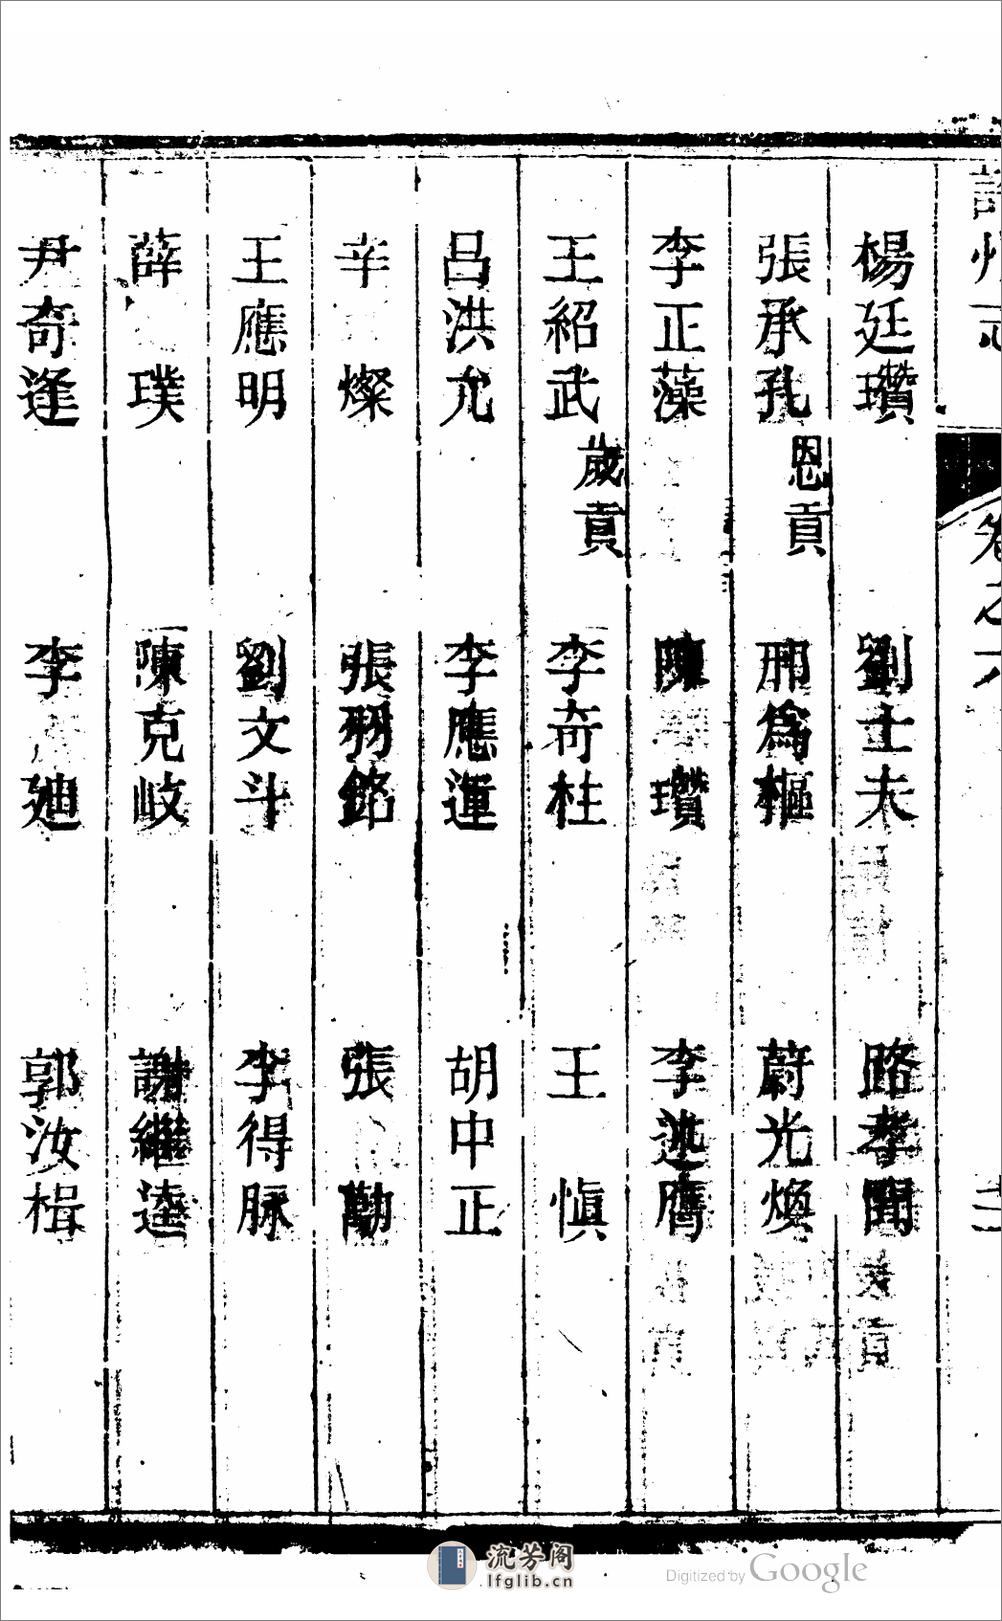 許州志
卷之六
楊廷瓚 劉士夫 路孝聞
張承孔 恩貢 邢為樞 蔚光煥
李正藻 陳瓚 李進膺
王紹武 歲貢 李奇柱 王慎
呂洪尤 李應運 胡中正
辛燦 張羽銘 張勷
王應明 劉文斗 李得脉
薛璞 陳克岐 謝繼逵
尹奇逢 李廸 郭汝楫
流芳阁
lfglib.cn
Digitized by Google